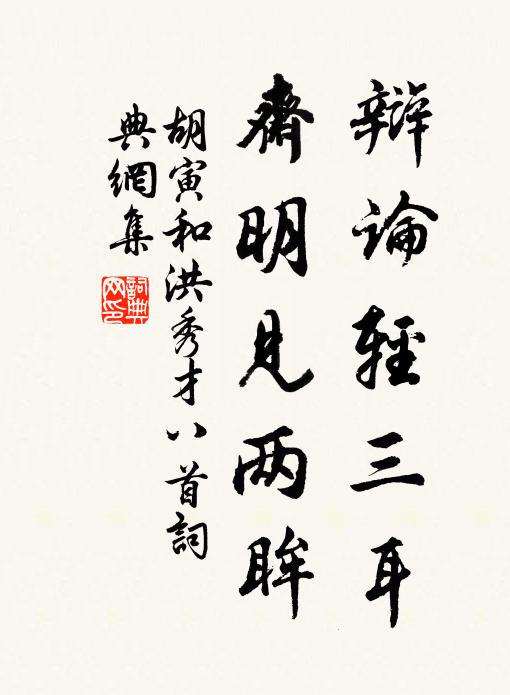 辯論輕三耳
齋明見兩眸
胡寅和洪秀才八首詞
典網集
詞典
网印